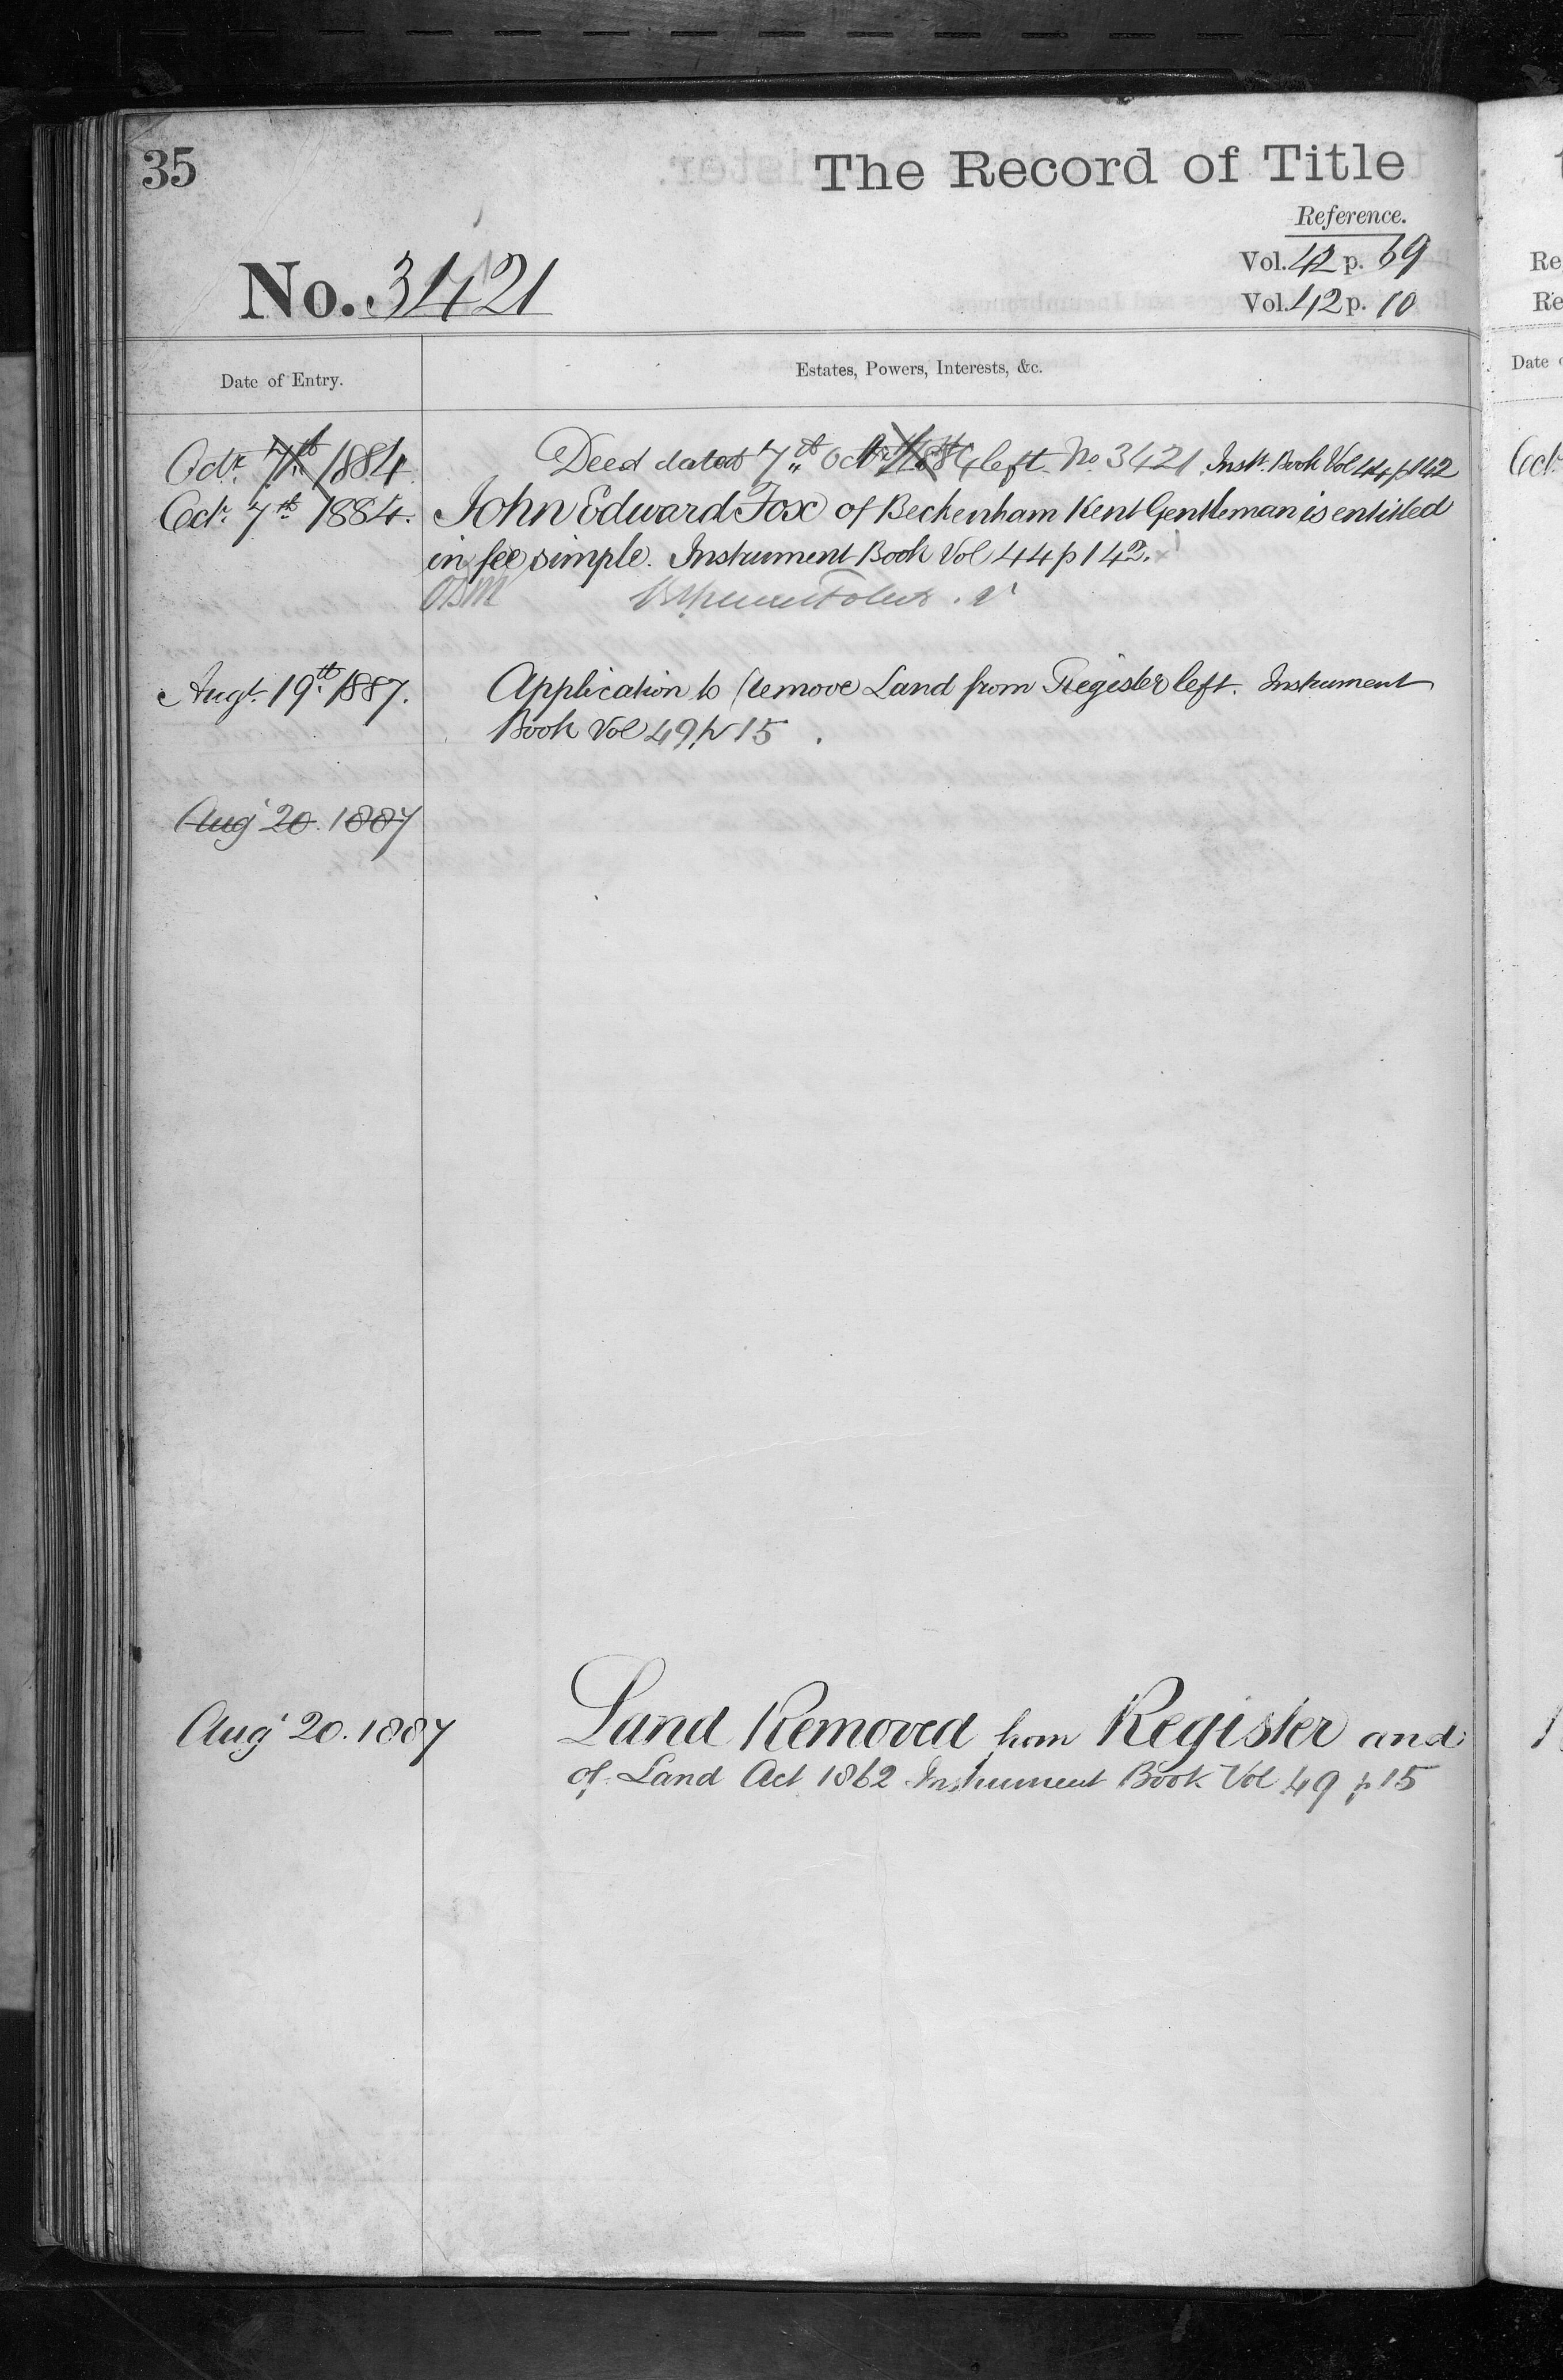 35
The Record of Title
Reference.
No. 3421
Vol. 42 p. 69
Vol. 42 p. 10
Date of Entry.
Estates, Powers, Interests, &c.
Octr. 7th 1884. Deed dated 7th Octr 1884 left. No 3421 Inst. Book Vol 44 p 142
Octr. 7th 1884. John Edward Fox of Beckenham Kent Gentleman is entitled
in fee simple. Instrument Book Vol 44 p 142.
Augt. 19th 1887. Application to remove Land from Register left. Instrument
Book Vol 49 p 15
Aug 20. 1887
Aug 20. 1887 Land Removed from Register and
of Land Act 1862 Instrument Book Vol 49 p 15
Re
Re
Date
Oct